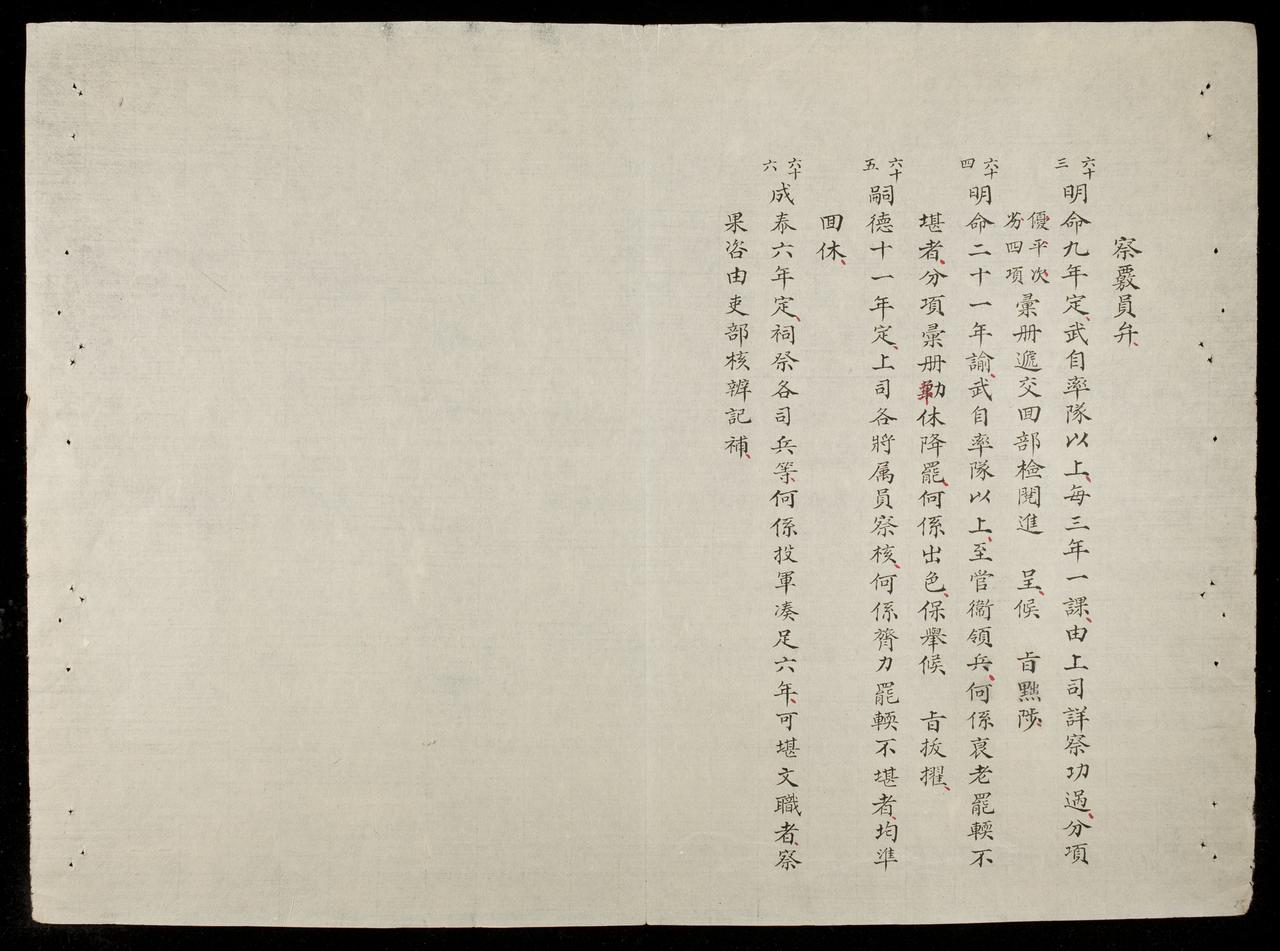 察覈員弁、
六十三 明命九年定、武自率隊以上、每三年一課、由上司詳察功過、分項
優平次劣四項 彙册遞交回部檢閱進 呈、候 旨黜陟、
六十四 明命二十一年諭、武自率隊以上、至營衞領兵、何係衰老罷輭不
堪者、分項彙册勒休降罷、何係出色、保舉候 旨拔擢、
六十五 嗣德十一年定、上司各將属員察核、何係膂力罷輭不堪者、均準
回休、
六十六 成泰六年定、祠祭各司兵等、何係投軍凑足六年、可堪文職者、察
果咨由吏部核辨記補、